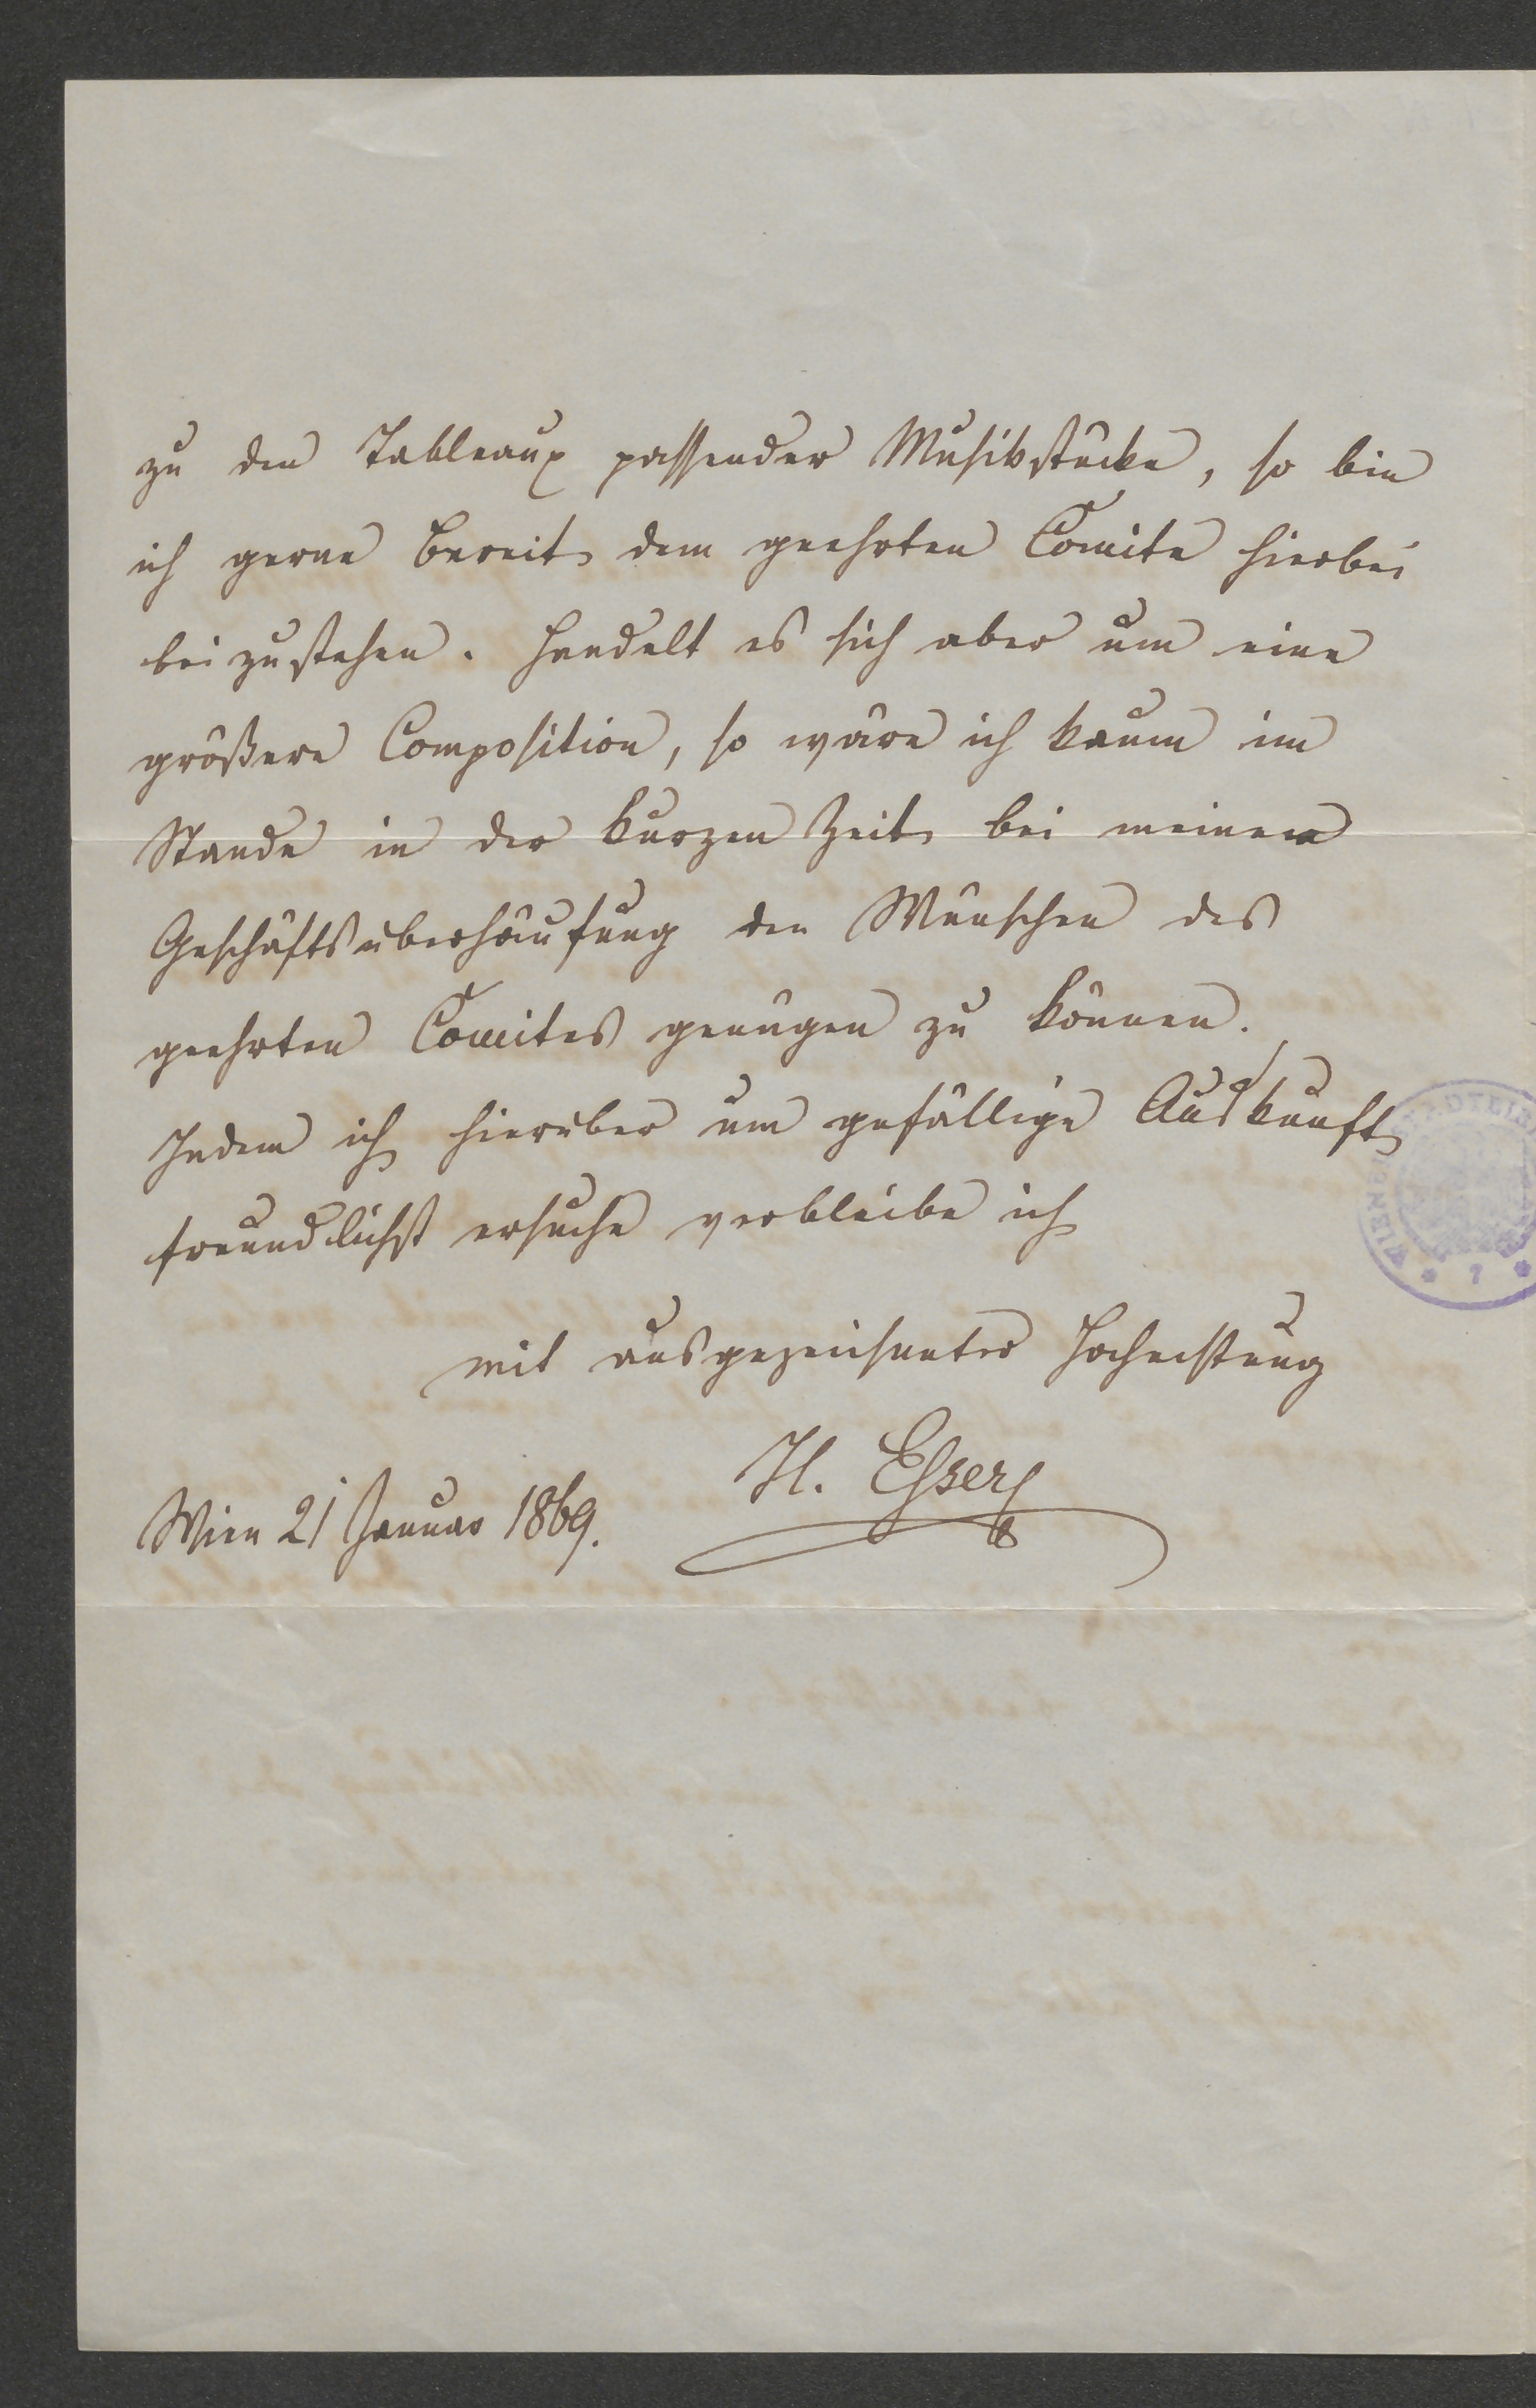 zu den Tableaux passender Musikstücke, so bin
ich gerne bereit dem geehrten Comite hierbei
beizustehen. Handelt es sich aber um eine
größere Composition, so wäre ich kaum im
Stande in der kurzen Zeit bei meiner
Geschäftsüberhäufung den Wünschen des
geehrten Comites genügen zu können.
Indem ich hierüber um gefällige Auskunft
freundlichst ersuche verbleibe ich
mit ausgezeichneter Hochachtung
H. Esser
Wien 21 Januar 1869.